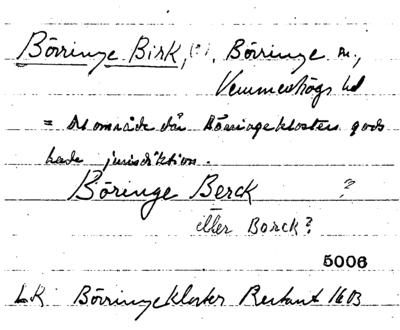 Börringe Birk, (?), Börringe sn,
Vemmenhögs hd
= Det område där Börringeklosters gods
hade jurisdiktion.
Böringe Berck ?
eller Borck?
5006
LR Börringekloster Restant 1603